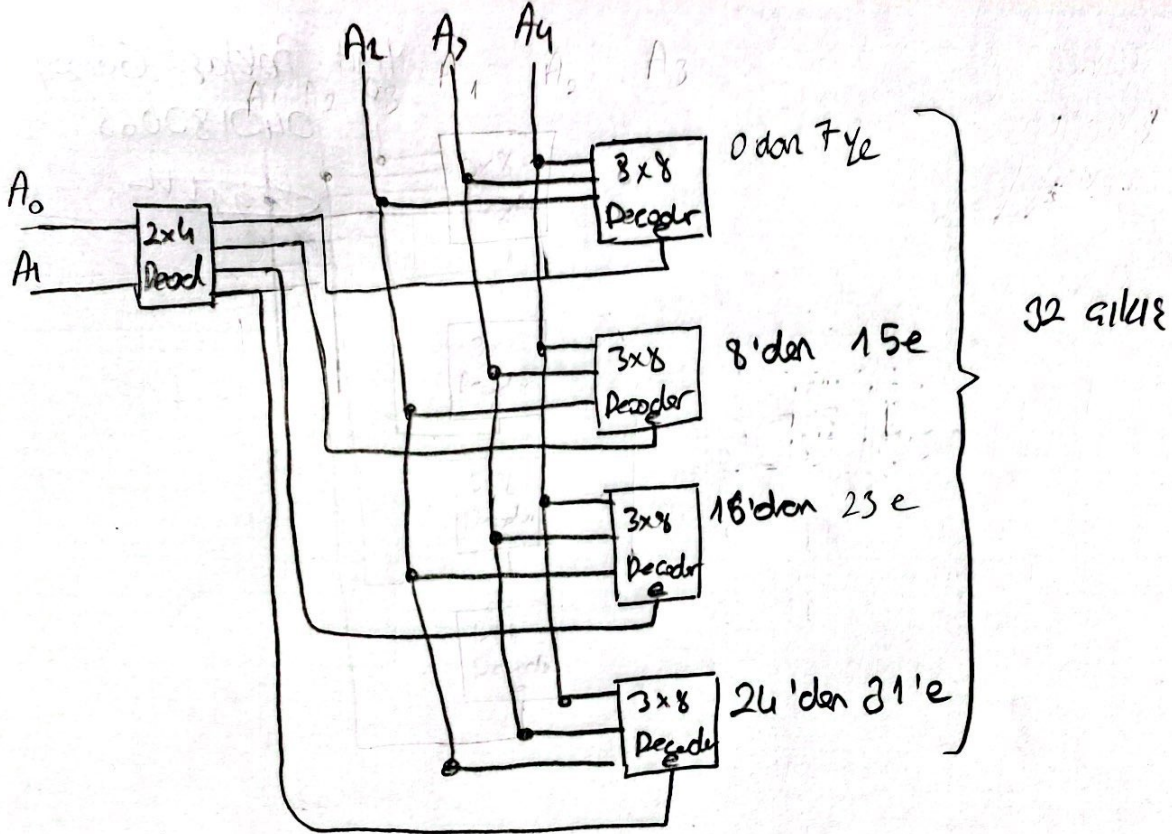 A2 A3 A4
A0
A1
2x4
Decod
3x8
Decoder
0 dan 7 ye
3x8
Decoder
e
8'den 15e
32 çıkış
3x8
Decoder
e
16'dan 23 e
3x8
Decoder
e
24'den 31'e